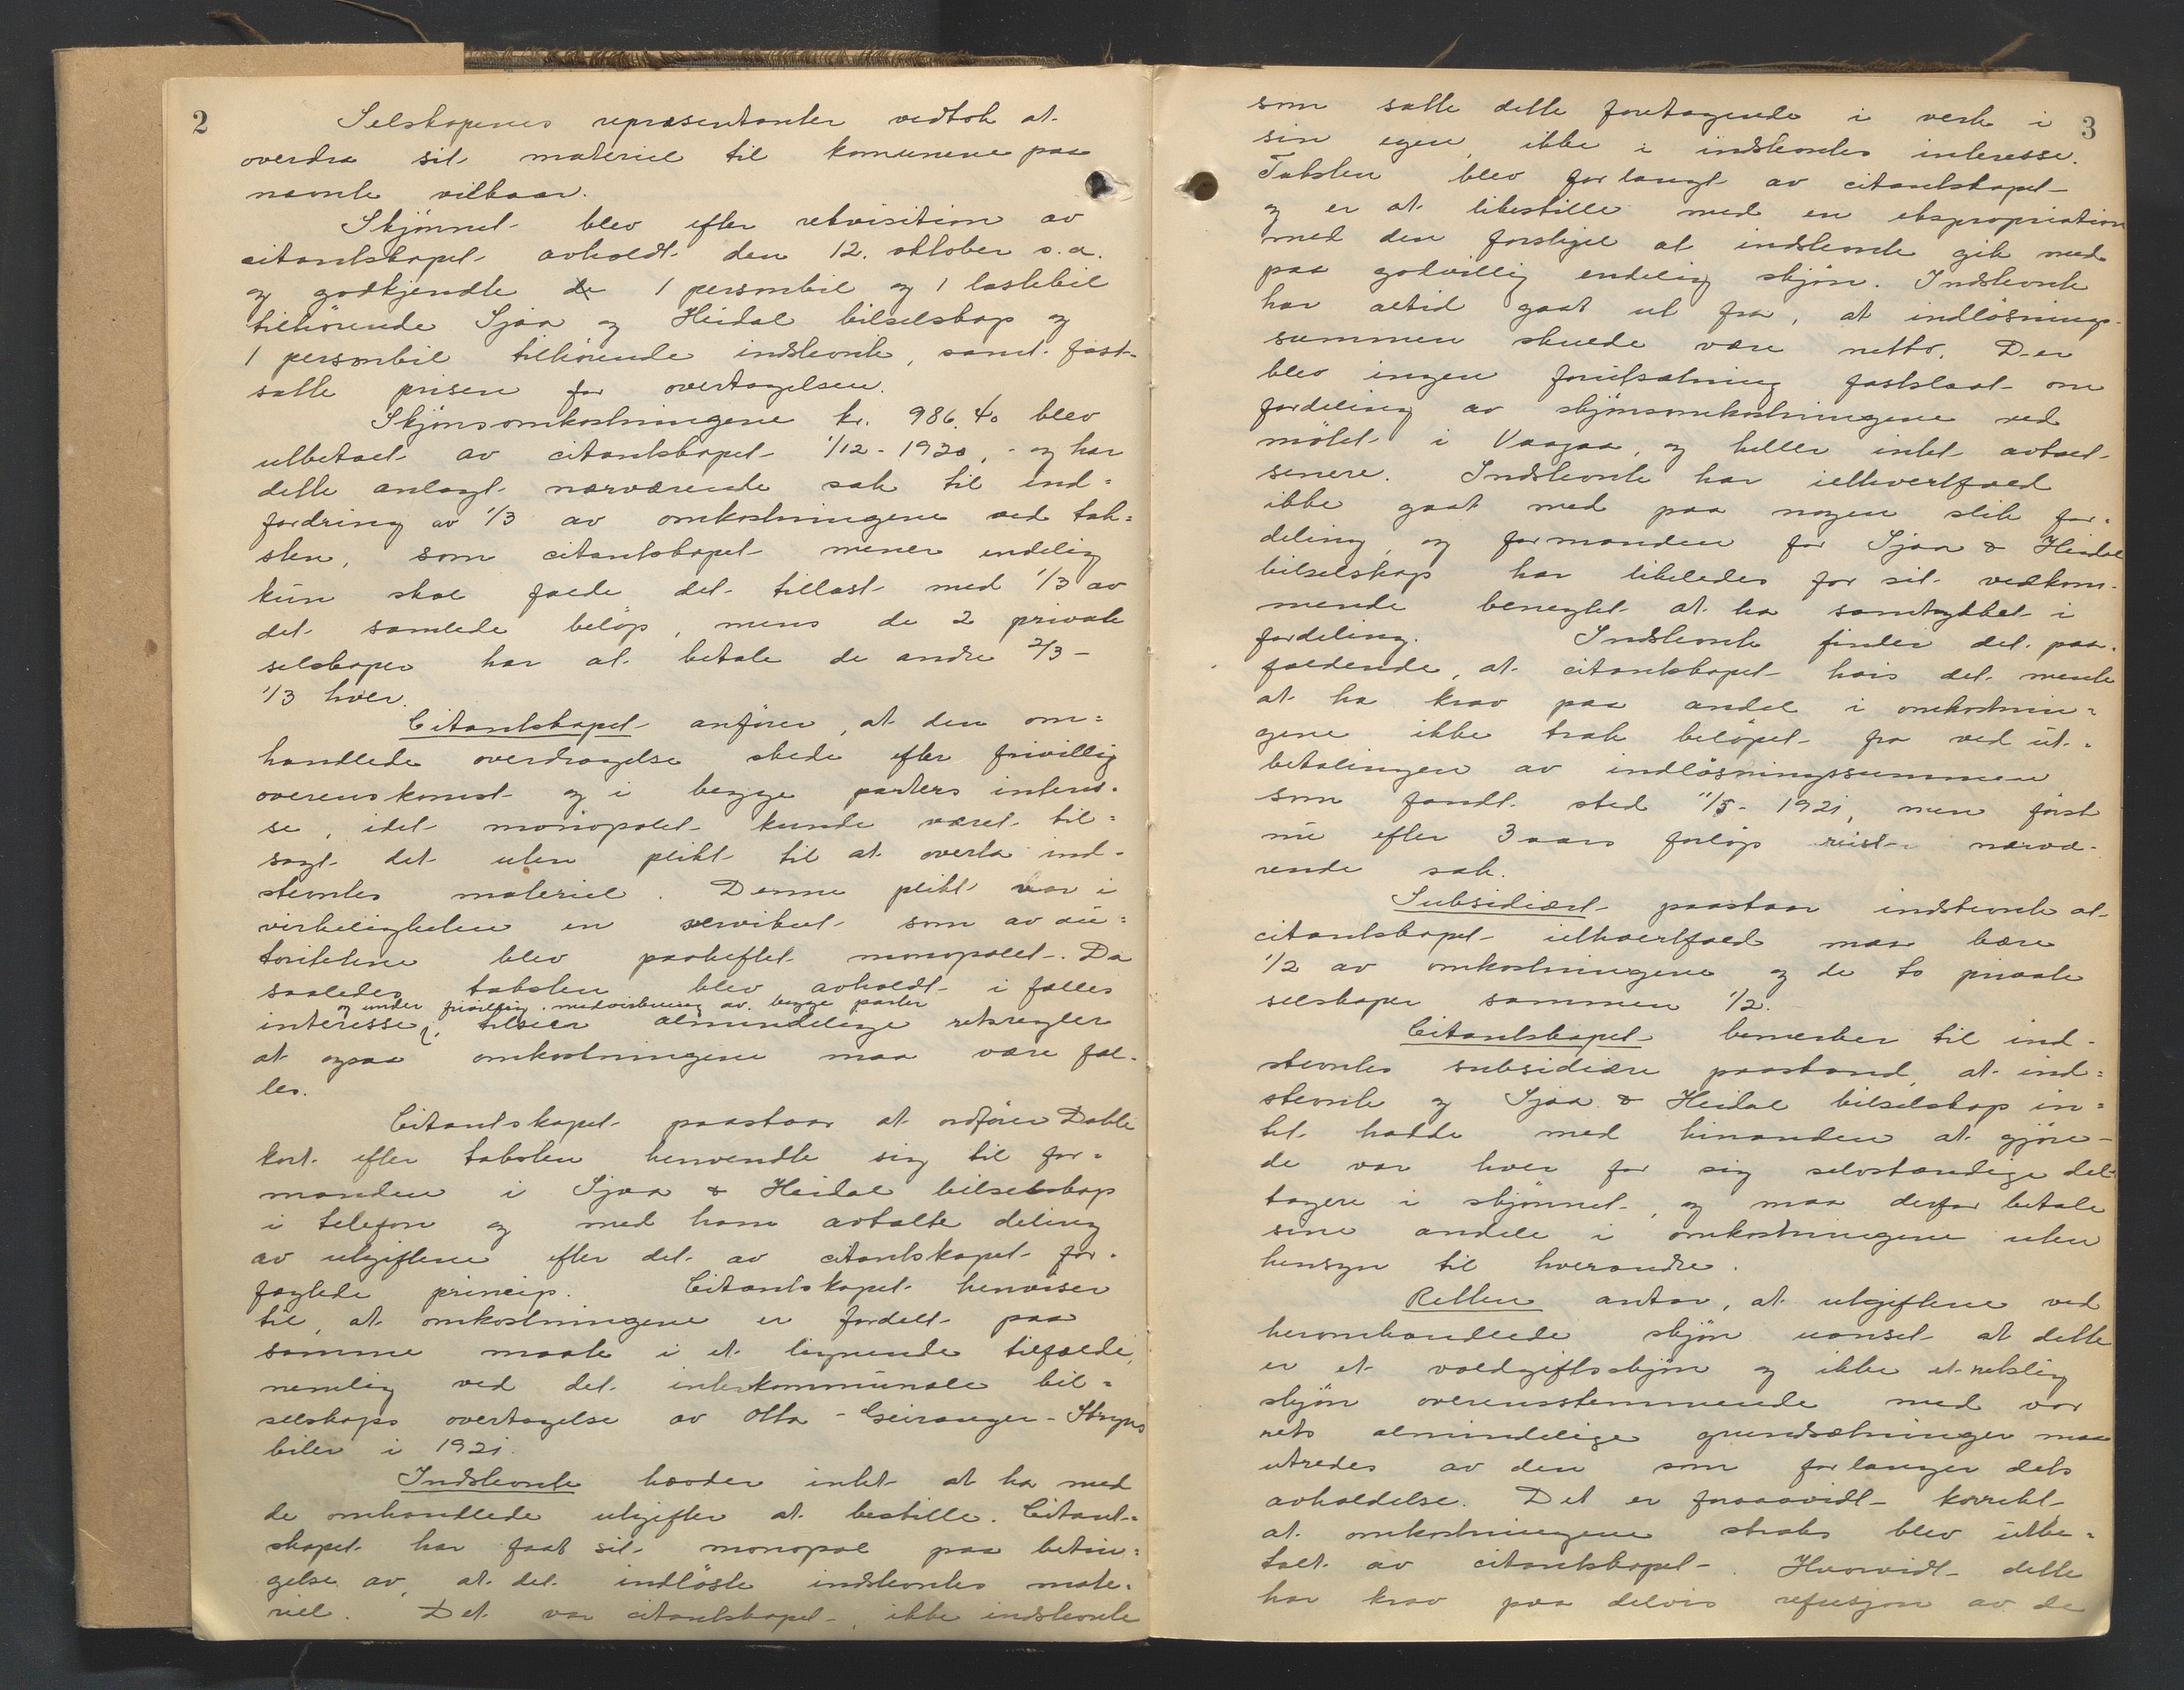 2
Selskapenes repræsentanter vedtok at
overdra sit materiel til komunene paa
nævnte vilkaar.
Skjønnet blev efter rekvisition av
citantskapet avholdt den 12. oktober s.a.
og godkjendte 1 personbil og 1 lastebil
tilhørende Sjoa og Heidal bilselskap og
1 personbil tilhørende indstevnte, samt fast-
satte prisen for overtagelsen.
Skjønsomkostningene kr. 986.40 blev
utbetalt av citantskapet 1/12-1920, - og har
dette anlagt nærværende sak til ind=
fordring av 1/3 av omkostningene ved tak=
sten, som citantskapet mener endelig
kun skal falde det tillast med 1/3 av
det samlede beløp, mens de 2 private
selskaper har at betale de andre 2/3 -
1/3 hver.
Citantskapet anfører, at den om=
handlede overdragelse skede efter frivillig
overenskomst og i begge parters interes-
se, idet monopolet kunde været til=
sagt det uten plikt til at overta ind-
stevntes materiel. Denne plikt var i
virkeligheten en servitut som av au=
toritetene blev paaheftet monopolet. Da
saaledes taksten blev avholdt i fælles
og under frivillig medvirkning av begge parter
interesse, tilsier almindelige retsregler
at ogsaa omkostningene maa være fæl-
les.
Citantskapet paastaar at ordfører Dahle
kort efter taksten henvendte sig til for-
manden i Sjoa & Heidal bilselskap
i telefon og med ham avtalte deling
av utgiftene efter det av citantskapet for-
fægtede princip. Citantskapet henviser
til, at omkostningene er fordelt paa
samme maate i et lignende tilfælde,
nemlig ved det interkommunale bil=
selskaps overtagelse av Otta-Geiranger-Stryns
biler i 1921.
Indstevnte hævder intet at ha med
de omhandlede utgifter at bestille. Citant=
skapet har faat sit monopol paa betin=
gelse av, at det indløste indstevntes mate-
riel. Det var citantskapet, ikke indstevnte
3
som satte dette foretagende i verk i
sin egen, ikke i indstevntes interesse.
Taksten blev forlangt av citantskapet
og er at likestille med en ekspropriation
med den forskjel at indstevnte gik med
paa godvillig endelig skjøn. Indstevnte
har altid gaat ut fra, at indløsnings-
summen skulde være netto. Der
blev ingen forutsætning fastslaat om
fordeling av skjønsomkostningene ved
møtet i Vaagaa, og heller intet avtalt
senere. Indstevnte har ialtvertfald
ikke gaat med paa nogen slik for-
deling, og formanden for Sjoa & Heidal
bilselskap har likeledes for sit vedkom-
mende benegtet at ha samtykket i
fordeling. Indstevnte finder det paa-
faldende, at citantskapet hvis det mente
at ha krav paa andel i omkostnin=
gene ikke trak beløpet fra ved ut=
betalingen av indløsningssummen
som fandt sted 11/5-1921, men først
nu efter 3 aars forløp reist nærvæ-
rende sak.
Subsidiært paastaar indstevnte at
citantskapet ialtvertfald maa bære
1/2 av omkostningene og de to private
selskaper sammen 1/2.
Citantskapet bemerker til ind-
stevntes subsidiære paastand, at ind=
stevnte og Sjoa & Heidal bilselskap in=
tet hadde med hinanden at gjøre -
de var hver for sig selvstændige del-
tagere i skjønnet, og maa derfor betale
sine andele i omkostningene uten
hensyn til hverandre.
Retten antar, at utgiftene ved
heromhandlede skjøn uanset at dette
er et voldgiftsskjøn og ikke et retslig
skjøn overensstemmende med vor
rets almindelige grundsætninger maa
utredes av den som forlanger dets
avholdelse. Det er forsaavidt korrekt
at omkostningene straks blev utbe=
talt av citantskapet. Hvorvidt dette
har krav paa delvis refusjon av de